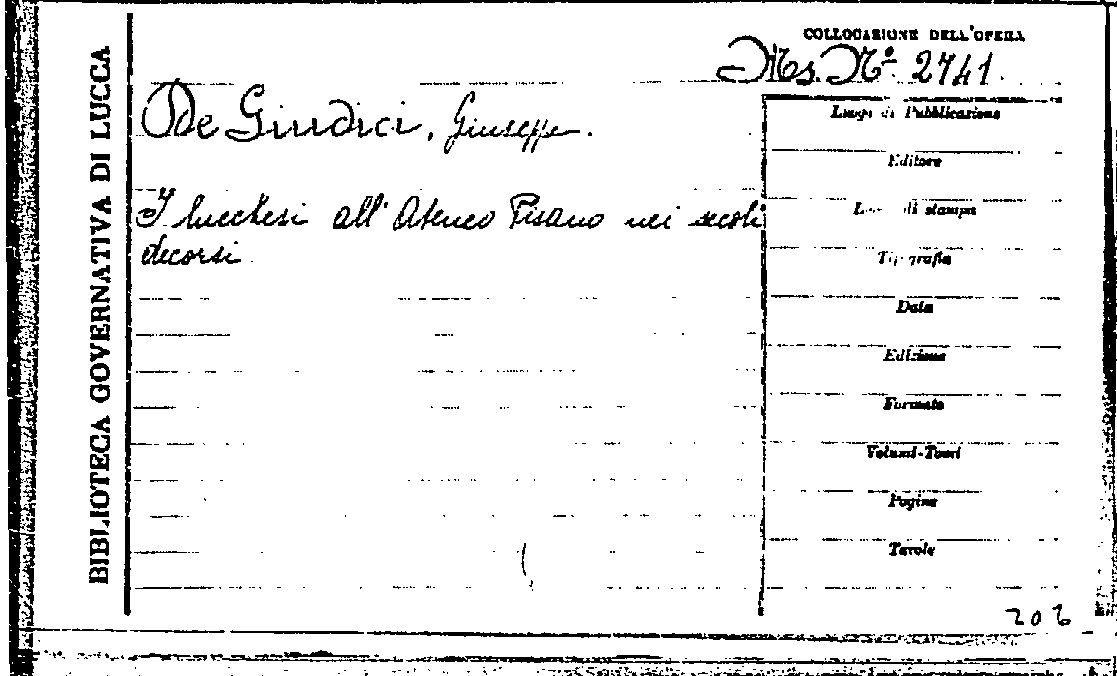 BIBLIOTECA GOVERNATIVA DI LUCCA
COLLOCAZIONE DELL'OPERA
Ms. Nº 2741.
De Giudici, Giuseppe.
I lucchesi all'Ateneo Pisano nei secoli
decorsi
Luogo di Pubblicazione
Editore
Luogo di stampa
Tipografia
Data
Edizione
Formato
Volumi-Tomi
Pagine
Tavole
206